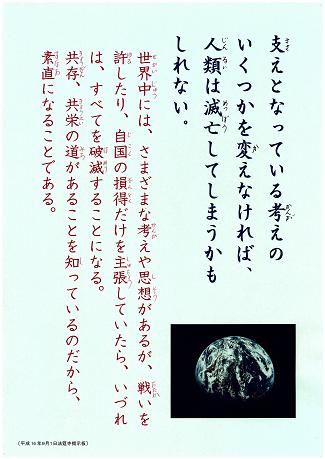 支えとなっている考えの
いくつかを変えなければ、
人類は滅亡してしまうかも
しれない。
世界中には、さまざまな考えや思想があるが、戦いを
許したり、自国の損得だけを主張していたら、いづれ
は、すべてを破滅することになる。
共存、共栄の道があることを知っているのだから、
素直になることである。
(平成16年9月1日 寺掲示板)